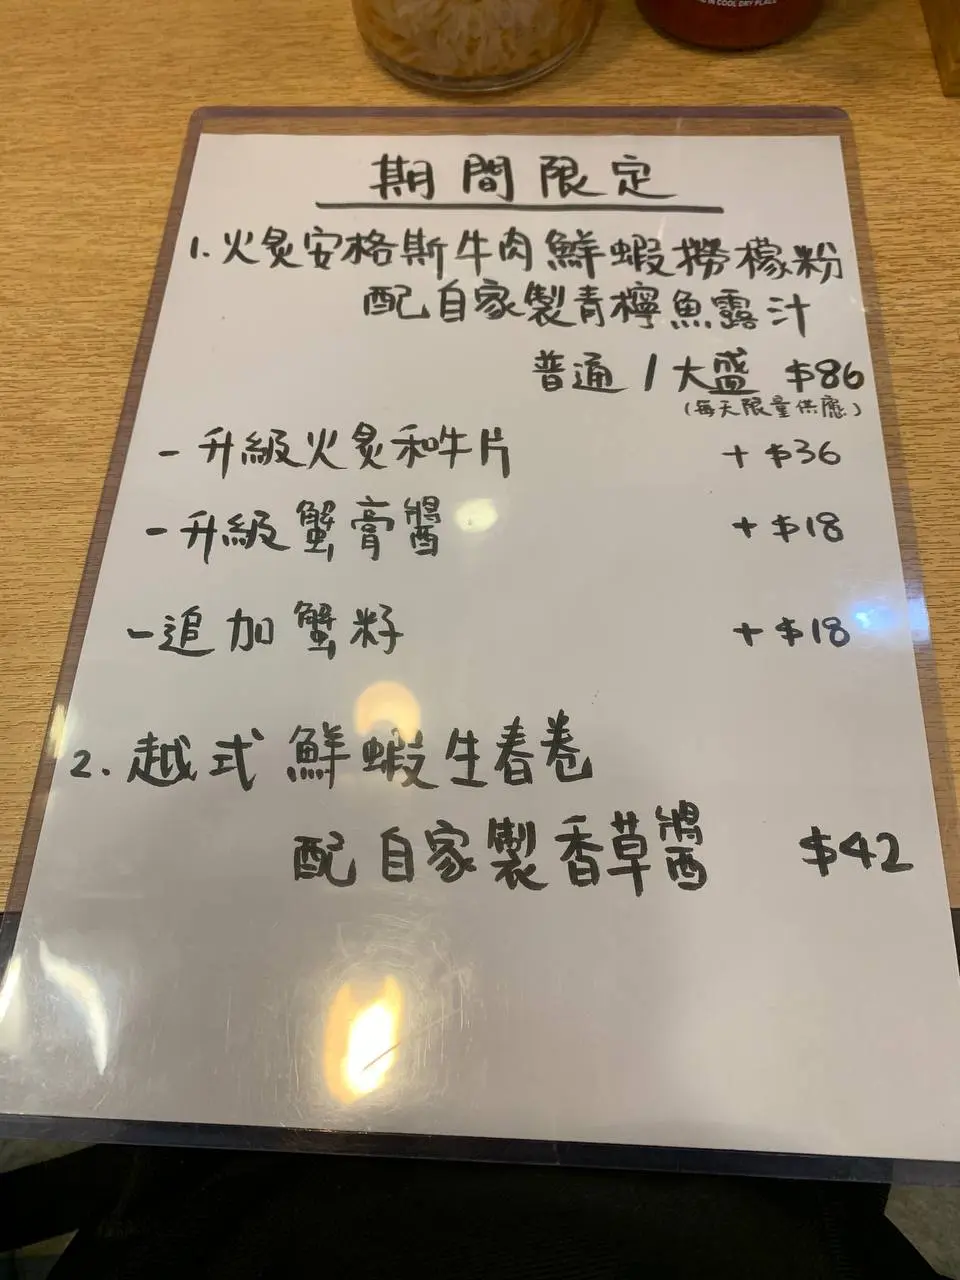 IN COOL DRY PLACE
期間限定
1. 火炙安格斯牛肉鮮蝦撈檬粉
配自家製青檸魚露汁
普通 / 大盛 $86
(每天限量供應)
- 升級火炙和牛片 + $36
- 升級蟹膏醬 + $18
- 追加蟹籽 + $18
2. 越式鮮蝦生春卷
配自家製香草醬 $42